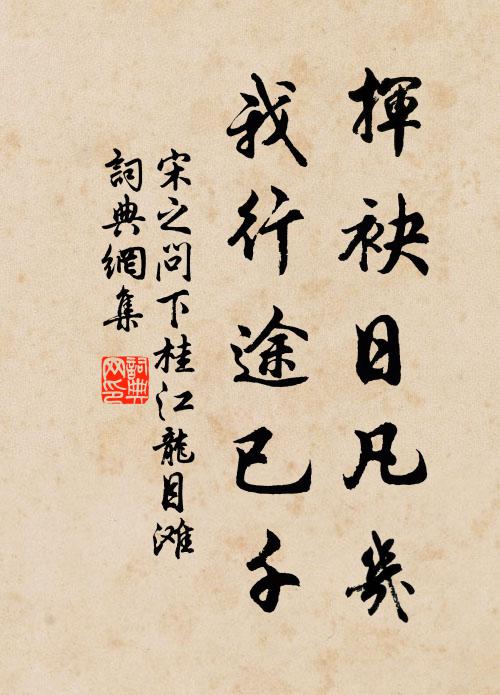 揮袂日凡幾
我行途已千
宋之問下桂江龍目滩
詞典網集
詞典网印